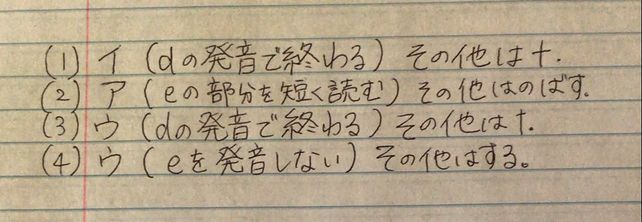 (1) イ (dの発音で終わる) その他はt.
(2) ア (eの部分を短く読む) その他はのばす.
(3) ウ (dの発音で終わる) その他はt.
(4) ウ (eを発音しない) その他はする。